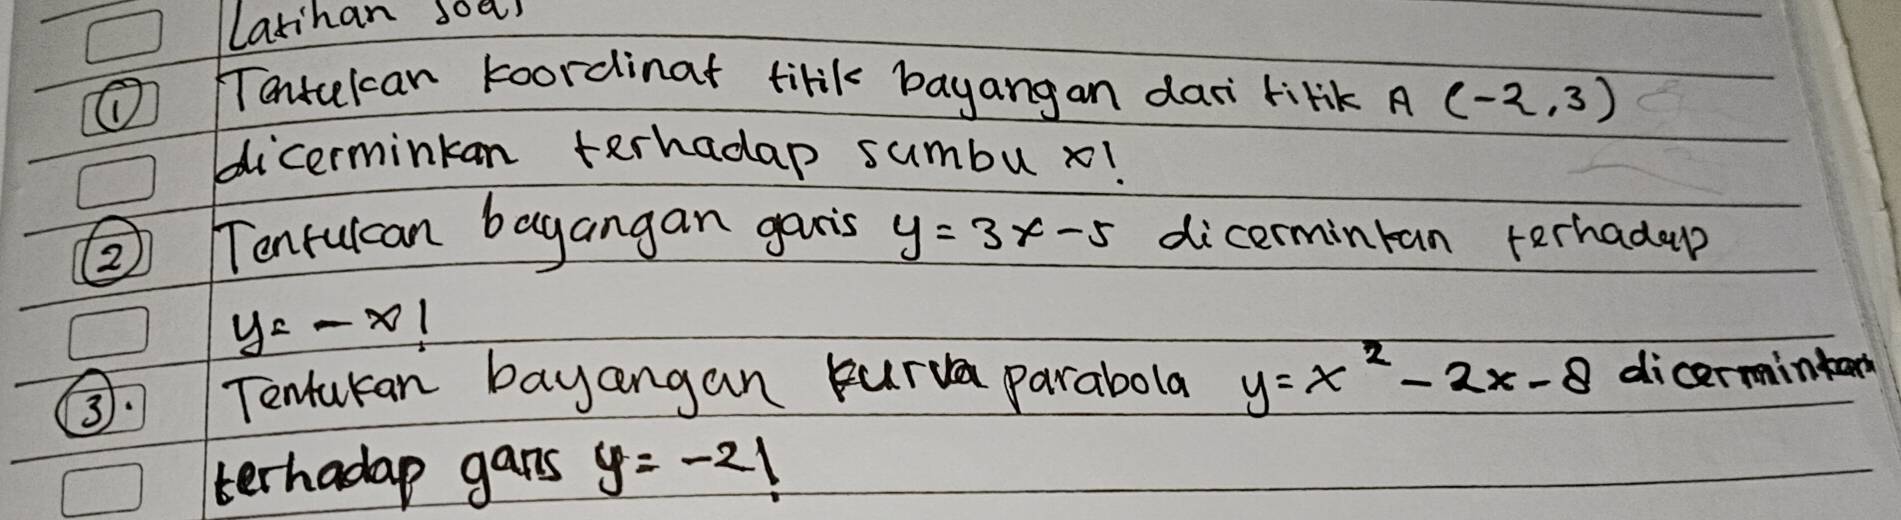 Latihan soal
① Tentukan koordinat titik bayangan dari titik A (-2,3)
dicerminkan terhadap sumbu x!
② Tentukan bayangan garis y = 3x - 5 dicerminkan terhadap
y = - x!
③. Tentukan bayangan kurva parabola y = x² - 2x - 8 dicerminkan
terhadap garis y = -2!